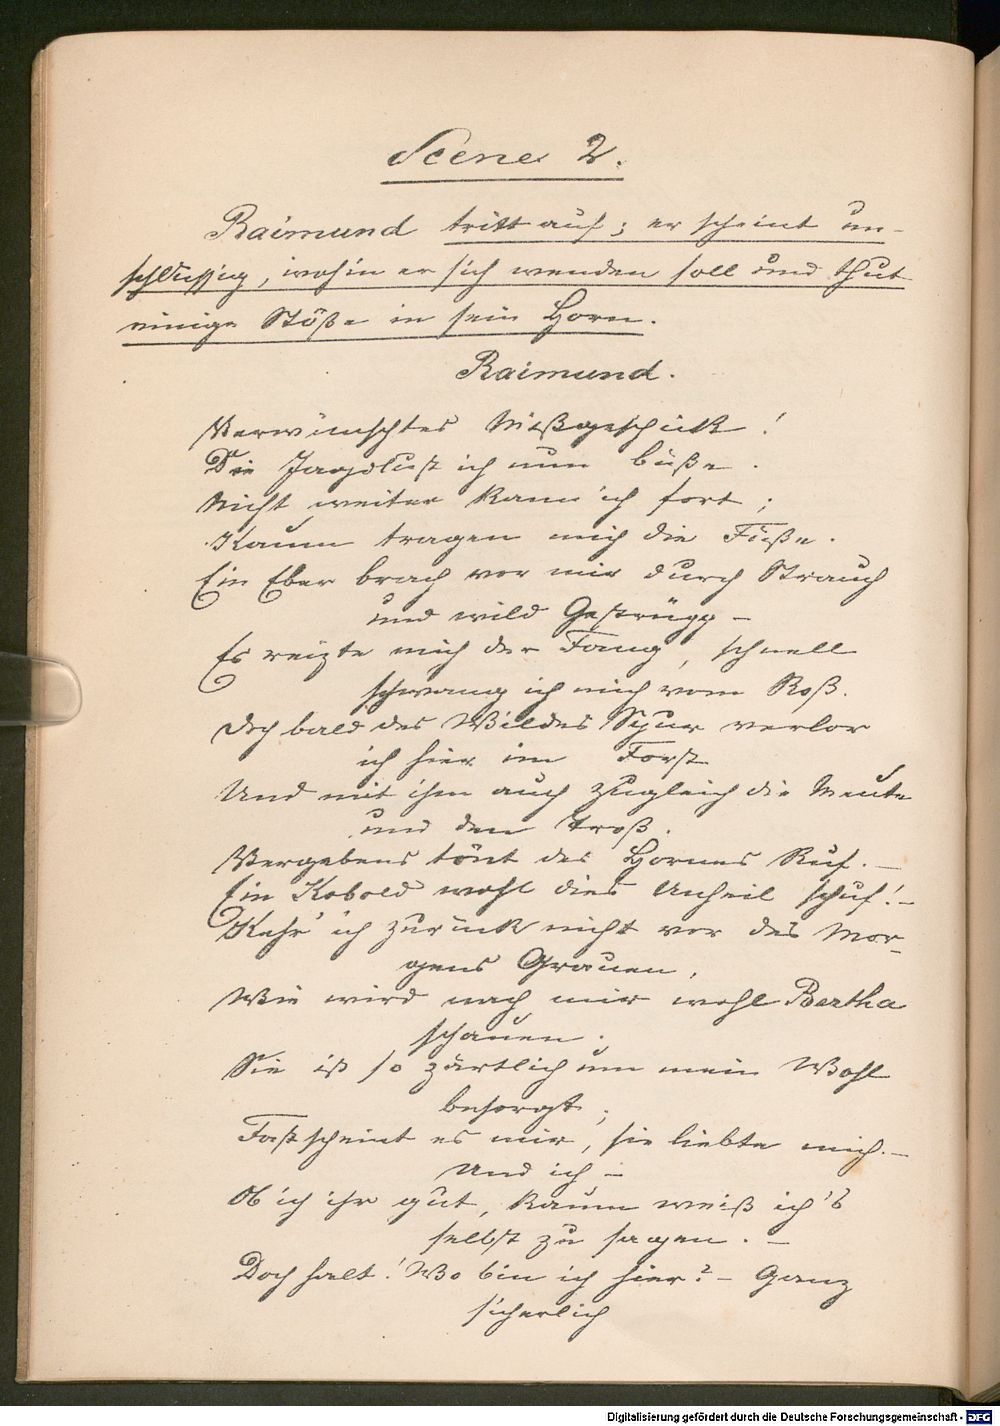 Scene 2.
Raimund tritt auf; er scheint un-
schlüssig, wohin er sich wenden soll und thut
einige Stöße in sein Horn.
Raimund.
Verwünschtes Mißgeschick!
Die Jagdlust ich nun büße.
Nicht weiter kann ich fort;
Kaum tragen mich die Füße.
Ein Eber brach vor mir durch Strauch
und wild Gestrüpp –
Es reizte mich der Fang, schnell
schwang ich mich vom Roß.
Doch bald des Wildes Spur verlor
ich hier im Forst
Und mit ihm auch zugleich die Meute
und den Troß.
Vergebens tönt des Hornes Ruf. –
Ein Kobold wohl dies Unheil schuf! –
Kehr' ich zurück nicht vor des Mor-
gens Grauen,
Wie wird nach mir wohl Bertha
schauen;
Sie ist so zärtlich um mein Wohl
besorgt;
Fast scheint es mir, sie liebte mich. –
Und ich –
Ob ich ihr gut, kaum weiß ich's
selbst zu sagen. –
Doch halt! Wo bin ich hier? – Ganz
sicherlich
Digitalisierung gefördert durch die Deutsche Forschungsgemeinschaft - DFG